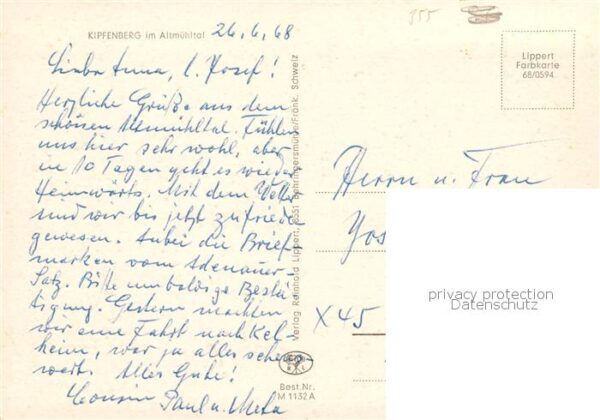 355
KIPFENBERG im Altmühltal 26.6.68
Liebe Anna, l. Josef!
Herzliche Grüße aus dem
schönen Altmühltal. Fühlen
uns hier sehr wohl, aber
in 10 Tagen geht es wieder
Heimwärts. Mit dem Wetter
sind wir bis jetzt zufrieden
gewesen. Anbei die Brief-
marken vom Adenauer-
Satz. Bitte um baldige Bestä-
tigung. Gestern machten
wir eine Fahrt nach Kel-
heim, war ja alles sehens-
wert. Alles Gute!
Cousin Paul u. Meta
Verlag Reinhold Lippert, 8551 Behringersmühle/Fränk. Schweiz
Best.Nr.
M 1132 A
Lippert
Farbkarte
68/0594
Herrn u. Frau
Jos
X 45
privacy protection
Datenschutz